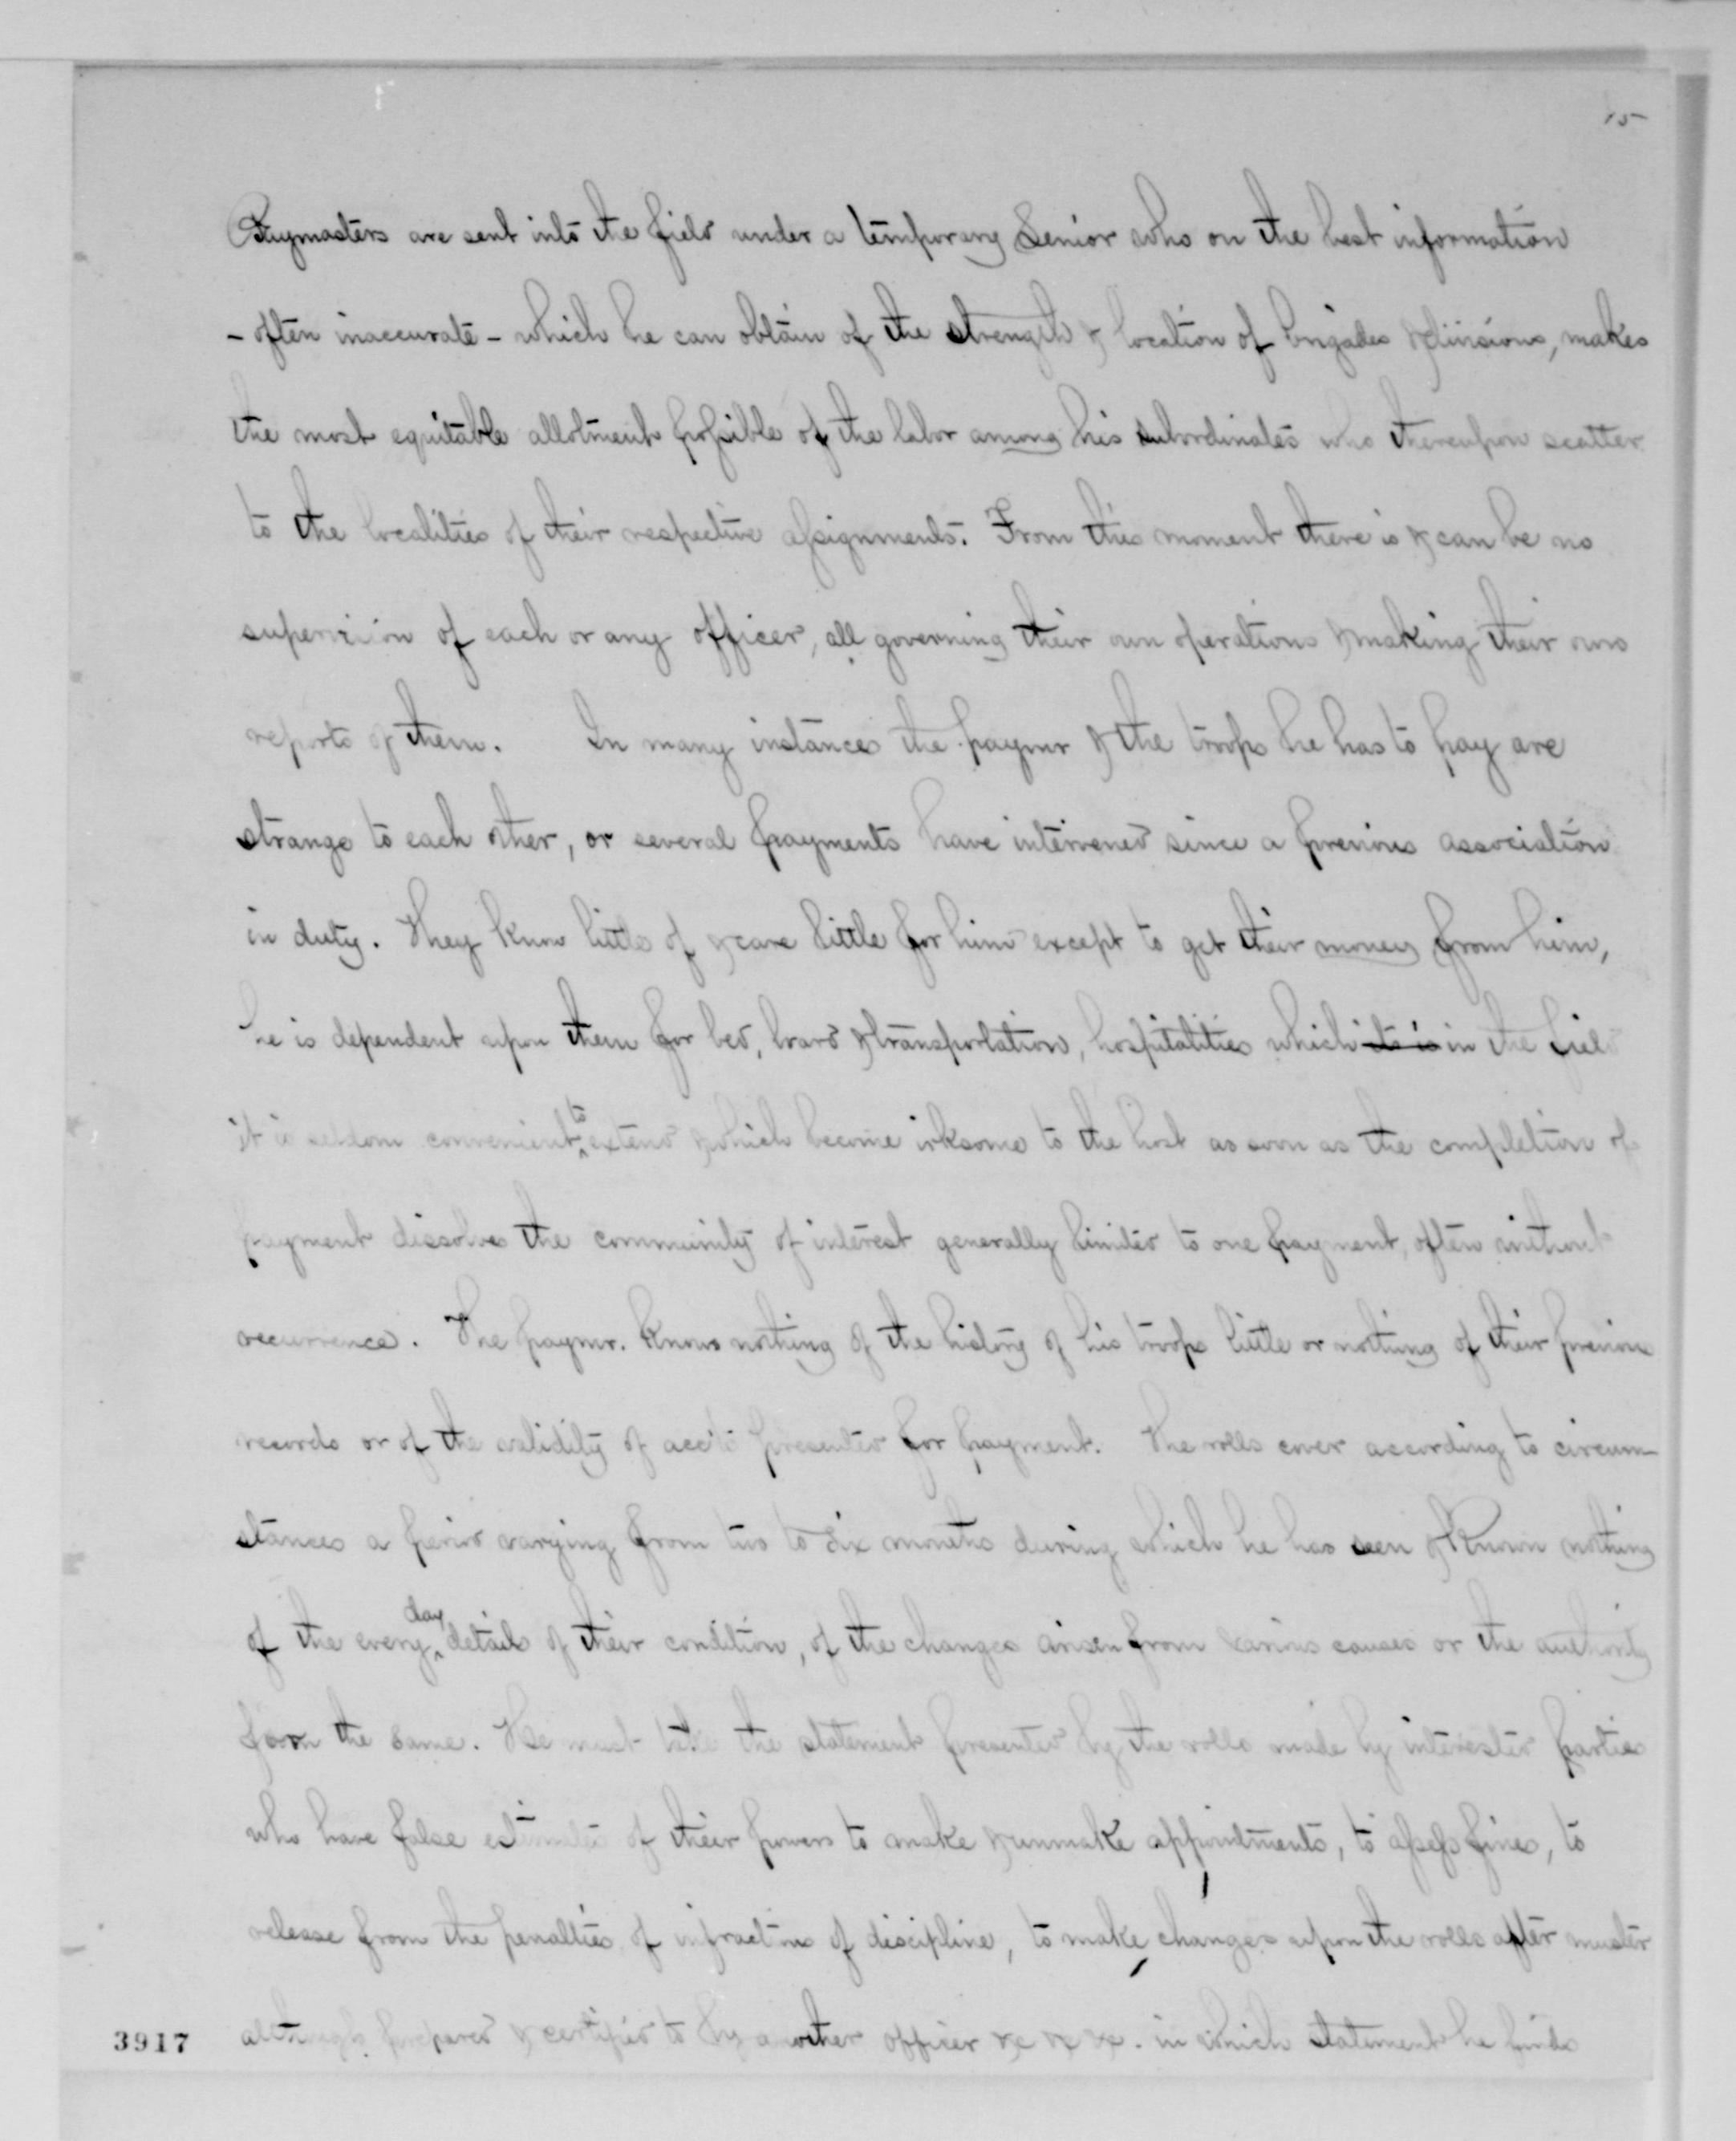 15
Paymasters are sent into the field under a temporary Senior who on the best information
- often inaccurate - which he can obtain of the strength & location of brigades & divisions, makes
the most equitable allotment possible of the labor among his subordinates who thereupon scatter
to the localities of their respective assignments. From this moment there is & can be no
supervision of each or any officer, all governing their own operations & making their own
reports of them. In many instances the paymr & the troops he has to pay are
strange to each other, or several payments have intervened since a previous association
in duty. They know little of & care little for him except to get their money from him,
he is dependent upon them for bed, board & transportation, hospitalities which its is in the field
it is seldom convenient to extend & which become irksome to the host as soon as the completion of
payment dissolves the community of interest generally limited to one payment, often without
recurrence. The paymr. knows nothing of the history of his troops little or nothing of their previous
records or of the validity of accts presented for payment. The rolls cover according to circum-
stances a period varying from two to six months during which he has seen & known nothing
of the every day details of their condition, of the changes arisen from various causes or the authority
for the same. He must take the statement presented by the rolls made by interested parties
who have false estimates of their powers to make & unmake appointments, to assess fines, to
release from the penalties of infractions of discipline, to make changes upon the rolls after muster
although prepared & certified to by another officer &c &c &c. in which statement he finds
3917